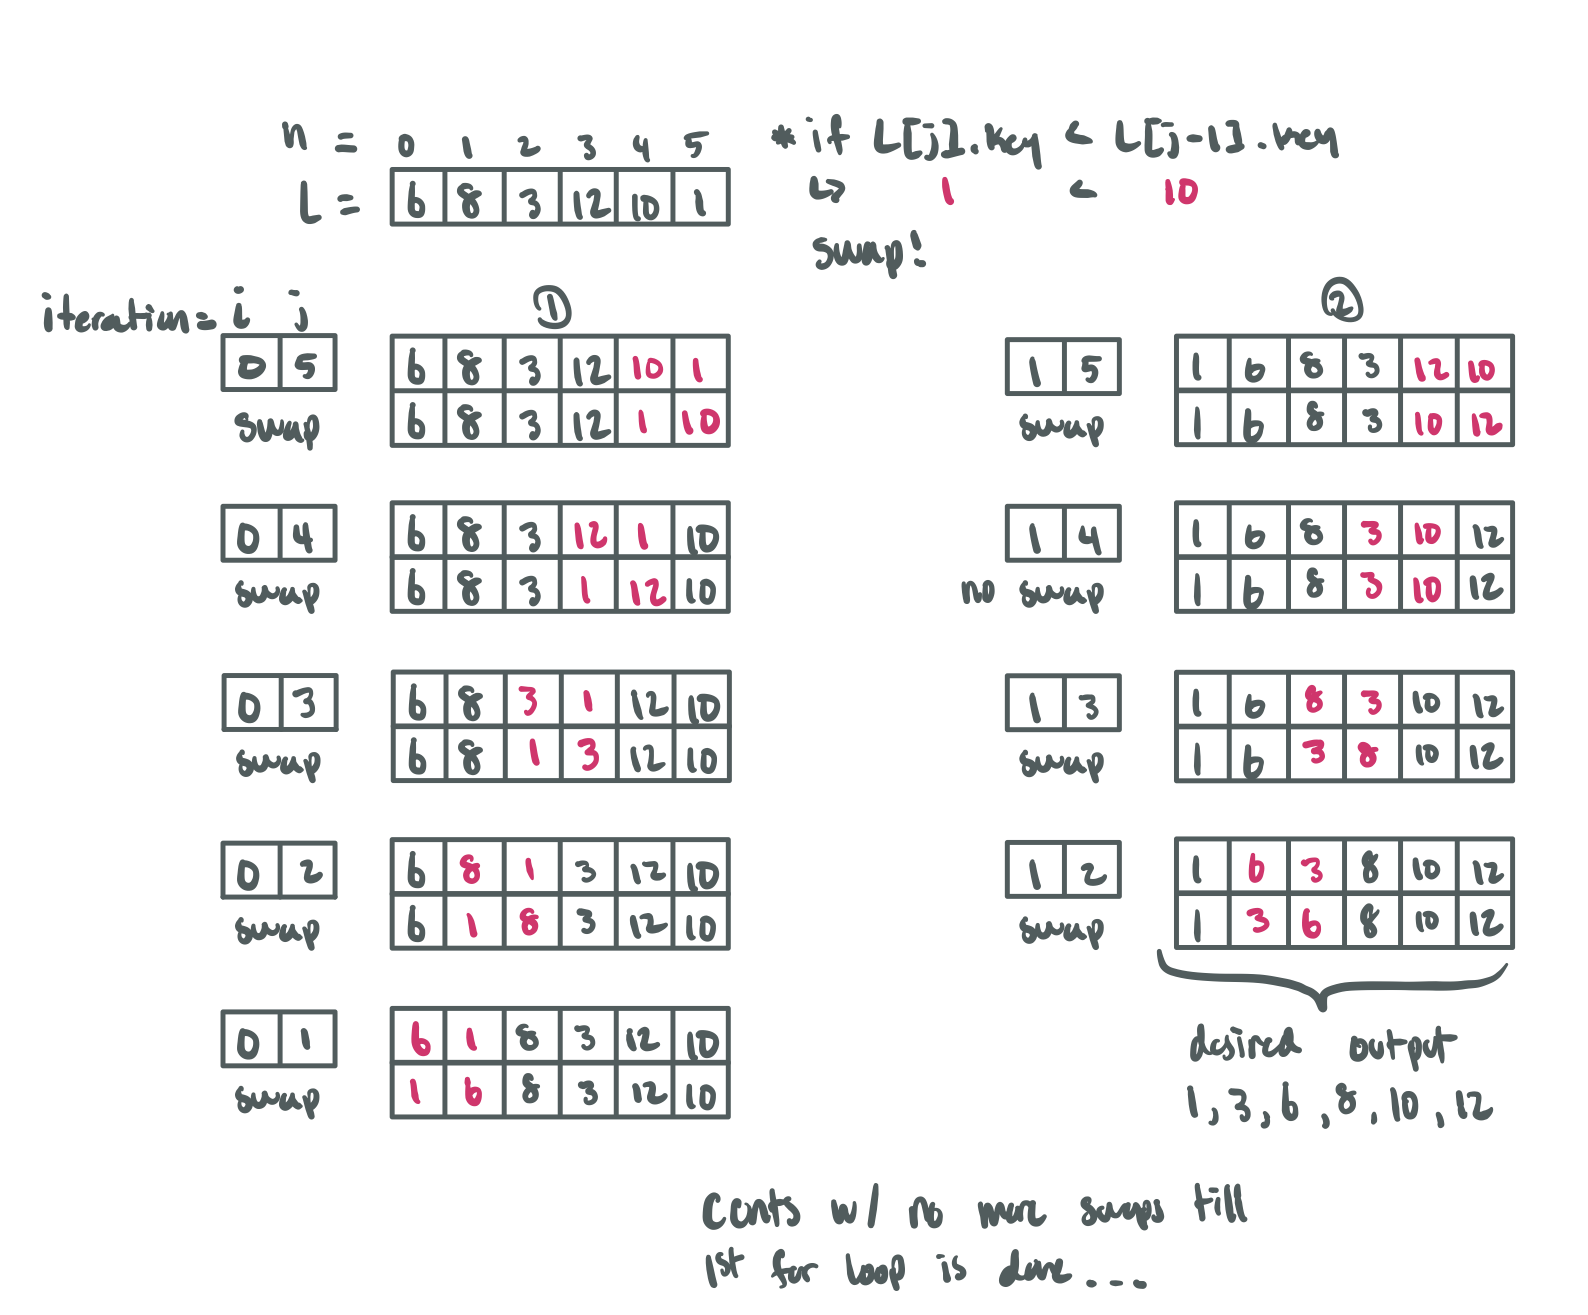 n = 0 1 2 3 4 5
L = 6 8 3 12 10 1
* if L[j].key < L[j-1].key
↳ 1 < 10
swap!
iteration = i j
①
0 5
6 8 3 12 10 1
6 8 3 12 1 10
swap
0 4
6 8 3 12 1 10
6 8 3 1 12 10
swap
0 3
6 8 3 1 12 10
6 8 1 3 12 10
swap
0 2
6 8 1 3 12 10
6 1 8 3 12 10
swap
0 1
6 1 8 3 12 10
1 6 8 3 12 10
swap
②
1 5
1 6 8 3 12 10
1 6 8 3 10 12
swap
1 4
1 6 8 3 10 12
1 6 8 3 10 12
no swap
1 3
1 6 8 3 10 12
1 6 3 8 10 12
swap
1 2
1 6 3 8 10 12
1 3 6 8 10 12
swap
desired output
1, 3, 6, 8, 10, 12
conts w/ no more swaps till
1st for loop is done ...